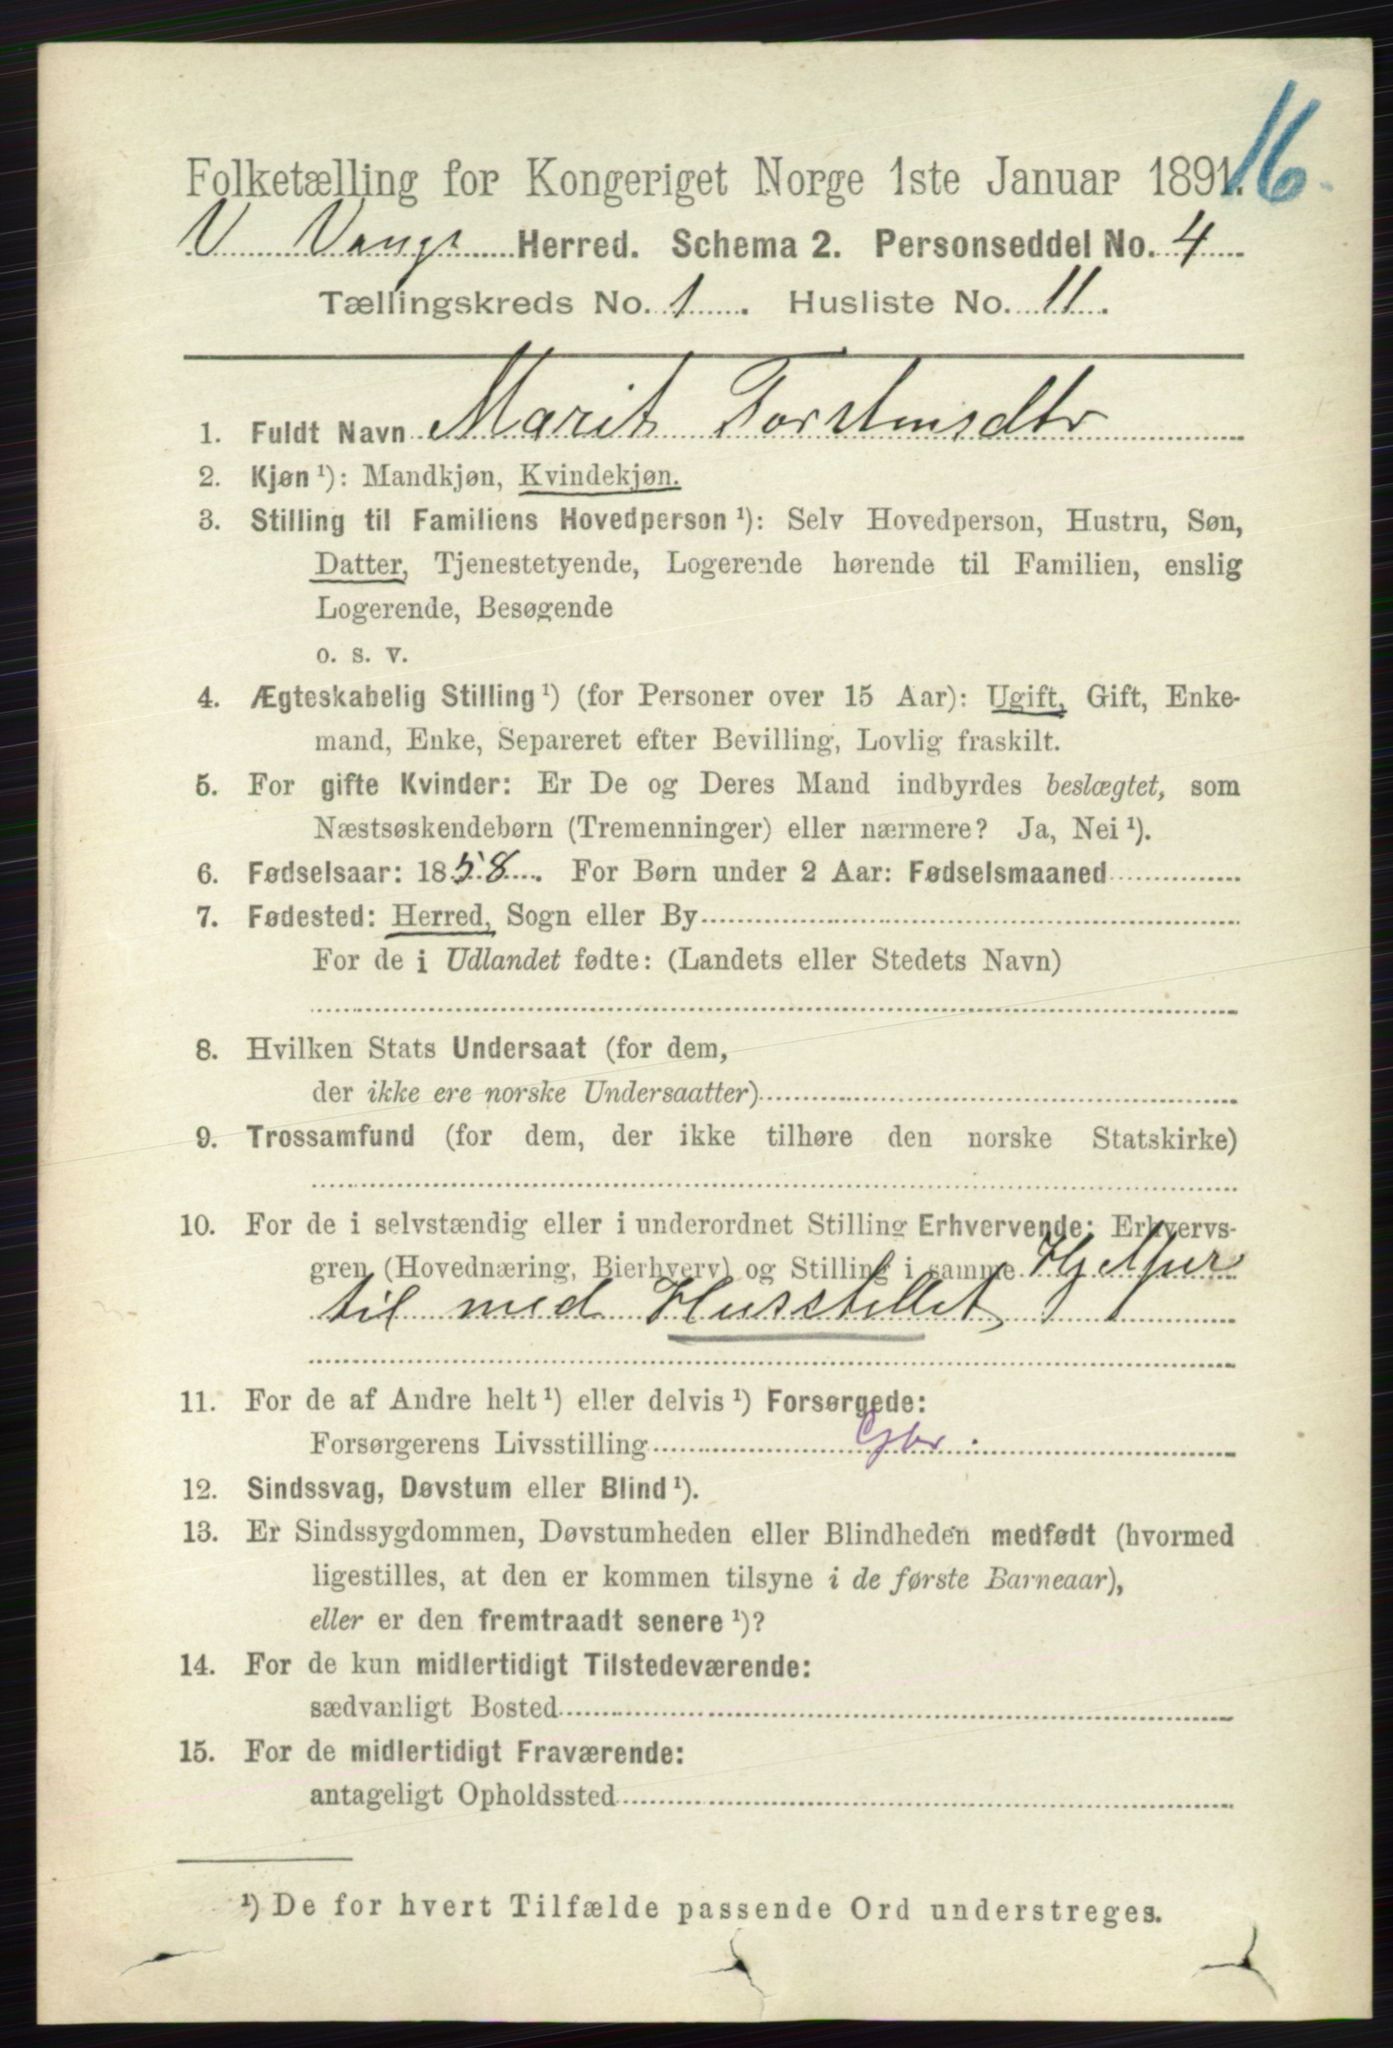 16
Folketælling for Kongeriget Norge 1ste Januar 1891.
V Vangs Herred. Schema 2. Personseddel No. 4
Tællingskreds No. 1. Husliste No. 11.
1. Fuldt Navn Marit Torstensdtr
2. Kjøn ¹): Mandkjøn, Kvindekjøn.
3. Stilling til Familiens Hovedperson ¹): Selv Hovedperson, Hustru, Søn,
Datter, Tjenestetyende, Logerende hørende til Familien, enslig
Logerende, Besøgende
o. s. v.
4. Ægteskabelig Stilling ¹) (for Personer over 15 Aar): Ugift, Gift, Enke-
mand, Enke, Separeret efter Bevilling, Lovlig fraskilt.
5. For gifte Kvinder: Er De og Deres Mand indbyrdes beslægtet, som
Næstsøskendebørn (Tremenninger) eller nærmere? Ja, Nei ¹).
6. Fødselsaar: 1858. For Børn under 2 Aar: Fødselsmaaned
7. Fødested: Herred, Sogn eller By
For de i Udlandet fødte: (Landets eller Stedets Navn)
8. Hvilken Stats Undersaat (for dem,
der ikke ere norske Undersaatter)
9. Trossamfund (for dem, der ikke tilhøre den norske Statskirke)
10. For de i selvstændig eller i underordnet Stilling Erhvervende: Erhvervs-
gren (Hovednæring, Bierhverv) og Stilling i samme Hjelper
til med Husstellet
11. For de af Andre helt ¹) eller delvis ¹) Forsørgede:
Forsørgerens Livsstilling Gbr.
12. Sindssvag, Døvstum eller Blind ¹).
13. Er Sindssygdommen, Døvstumheden eller Blindheden medfødt (hvormed
ligestilles, at den er kommen tilsyne i de første Barneaar),
eller er den fremtraadt senere ¹)?
14. For de kun midlertidigt Tilstedeværende:
sædvanligt Bosted
15. For de midlertidigt Fraværende:
antageligt Opholdssted
¹) De for hvert Tilfælde passende Ord understreges.